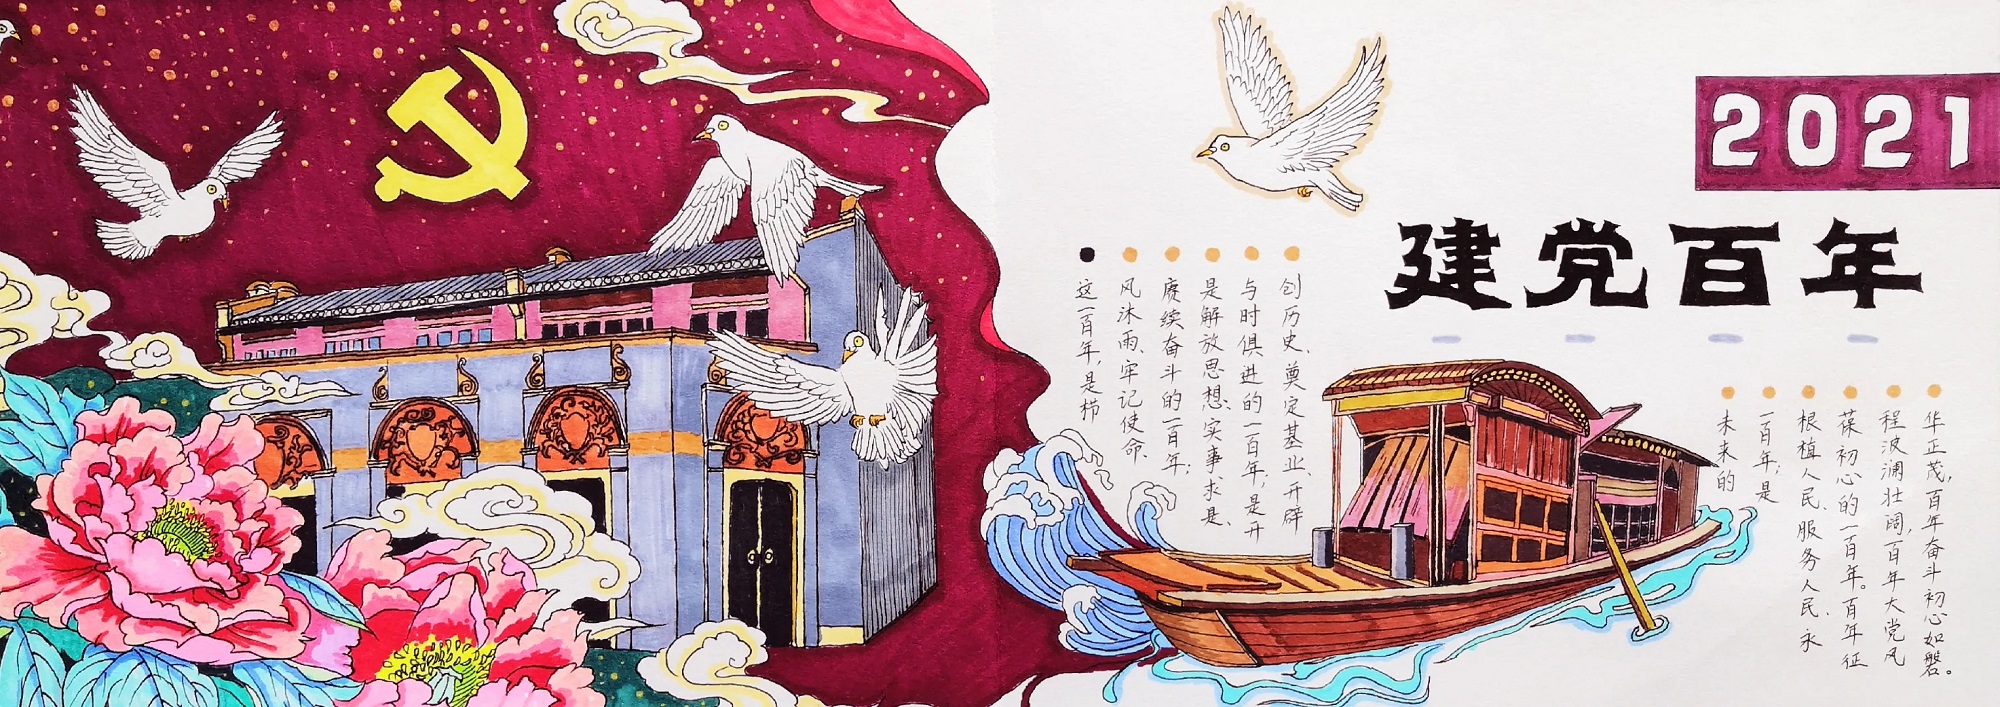 2021
建党百年
这一百年,是栉
风沐雨、牢记使命、
赓续奋斗的一百年;
是解放思想、实事求是、
与时俱进的一百年,是开
创历史、奠定基业、开辟
未来的
一百年;是
根植人民、服务人民、永
葆初心的一百年。百年征
程波澜壮阔,百年大党风
华正茂,百年奋斗初心如磐。